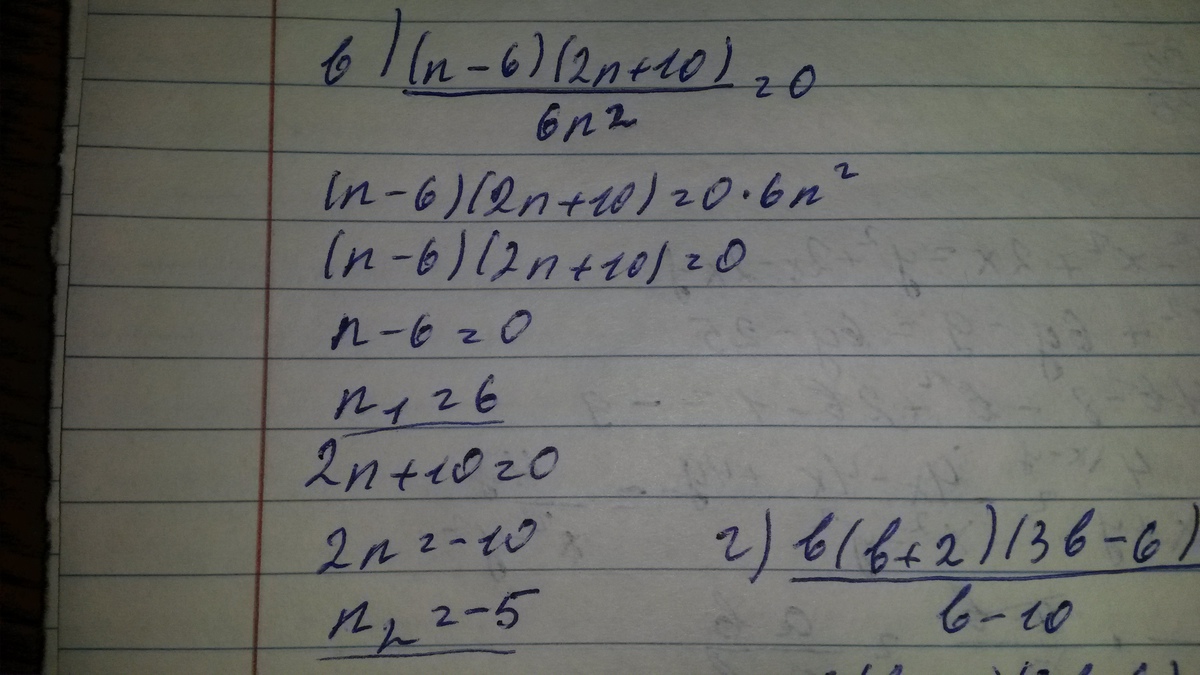 в) (n-6)(2n+10) = 0
6n²
(n-6)(2n+10)=0·6n²
(n-6)(2n+10)=0
n-6=0
n₁=6
2n+10=0
2n=-10
n₂=-5
г) b(b+2)(3b-6)
b-10